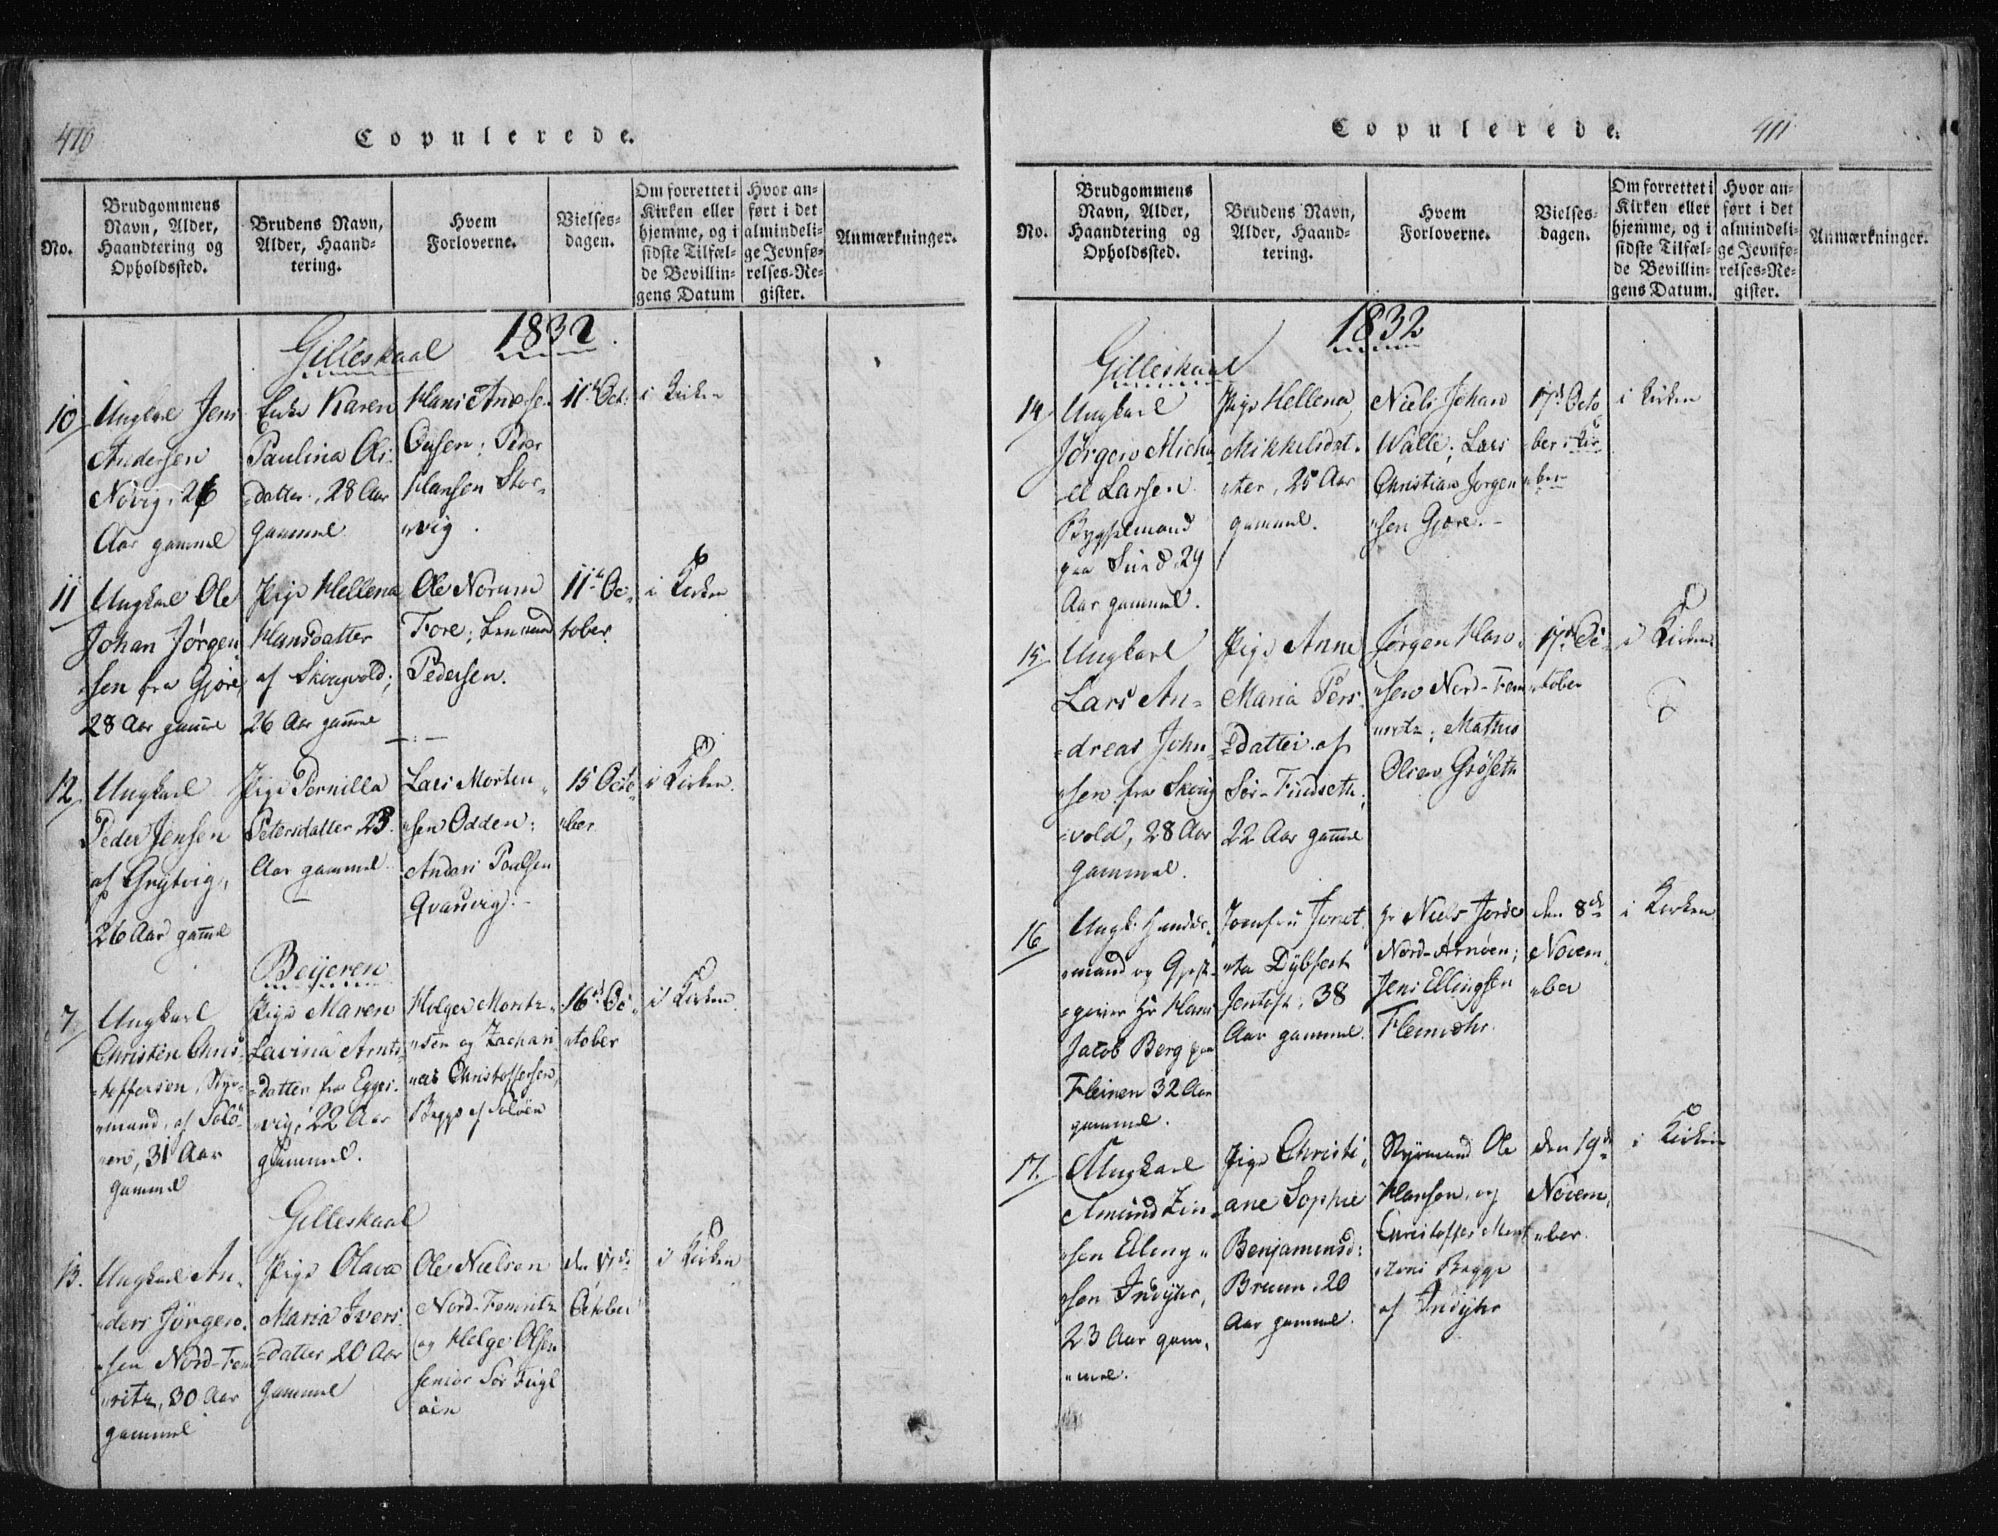 410
Copulerede.
No.
Brudgommens
Navn, Alder,
Haandtering og
Opholdssted.
Brudens Navn,
Alder, Haand-
tering.
Hvem
Forloverne.
Vielses-
dagen.
Om forrettet i
Kirken eller
hjemme, og i
sidste Tilfæl-
de Bevillin-
gens Datum
Hvor an-
ført i det
almindeli-
ge Jevnfø-
relses-Re-
gister.
Anmærkninger.
Gilleskaal 1832
10
Ungkarl Jens
Andersen
Novig, 26
Aar gammel
Enke Karen
Paulina Ols-
datter, 28 Aar
gammel
Hans Anders
Ousen; Peder
Hansen Stor-
vig.
11t Oct:
i Kirken
11
Ungkarl Ole
Johan Jørgen-
sen fra Gjøre,
28 Aar gammel
Pige Hellena
Hansdatter
af Skougvold;
26 Aar gammel
Ole Norum
Fore;
Pedersen.
11t Oc-
tober
i Kirken
12
Ungkarl
Peder Jensen
af Grytvig,
26 Aar gammel
Pige Pernilla
Petersdatter 23
Aar gammel
Lars Morten-
sen Odden;
Anders Poulsen
Qvanvig.
15 Octo-
ber
i Kirken.
Beijeren
7
Ungkarl
Christen Chris-
toffersen, Styr-
mand, af Solø-
en, 31 Aar
gammel
Pige Maren
Lavina Arnts-
datter fra Egges-
vig, 22 Aar
gammel.
Holger Moritz-
sen og Zachari-
as Christoffersen,
Begge af Soløen
16d Oc-
tober
i Kirken
Gilleskaal
13.
Ungkarl An-
ders Jørgen-
sen Nord-Fem-
ritz, 30 Aar
gammel
Pige Olava
Maria Ivers-
datter 20 Aar
gammel
Ole Nielsen
Nord-Femritz
og Helge Olsen
senior Sør Fugl
øen
den 17de
October
i Kirken
Copulerede.
411
No.
Brudgommens
Navn, Alder,
Haandtering og
Opholdssted.
Brudens Navn,
Alder, Haand-
tering.
Hvem
Forloverne.
Vielses-
dagen.
Om forrettet i
Kirken eller
hjemme, og i
sidste Tilfæl-
de Bevillin-
gens Datum.
Hvor an-
ført i det
almindeli-
ge Jevnfø-
relses-Re-
gister.
Anmærkninger.
Gilleskaal 1832
14
Ungkarl
Jørgen Micha-
el Larsen
Bygselmand
paa Sund, 29
Aar gammel.
Pige Hellena
Mikkelsdat-
ter, 25 Aar
gammel.
Niels Johan
Walle; Lars
Christian Jørgen
sen Gjøre.
17d Octo-
ber
i Kirken
15
Ungkarl
Lars An-
dreas John-
sen fra Skoug
vold, 28 Aar
gammel.
Pige Anne
Maria Pers-
datter af
Sør-Findseth;
22 Aar gammel
Jørgen Han-
sen Nord-Fem
ritz; Mathis
Olsen Grøseth
17d Oc-
tober
i Kirken
16
Ungk: Handels-
mand og Gjest-
giver Hr Hans
Jacob Berg paa
Fleinen 32 Aar
gammel.
Jomfru Jonet-
ta Dybfest
Jentoft, 38
Aar gammel.
Hr Niels Jorde
Nord-Arnøen;
Jens Ellingsen
Fleinøhr.
den 8de
Novem-
ber
i Kirken
17.
Ungkarl
Amund Zin-
sen Eling-
sen Indyhr,
23 Aar gam-
mel.
Pige Christi-
ane Sophie
Benjaminsd:
Bruun, 20
Aar gammel.
Styrmand Ole
Hansen, og
Christoffer
Begge
af Indyhr
den 19de
Novem-
ber.
i Kirken